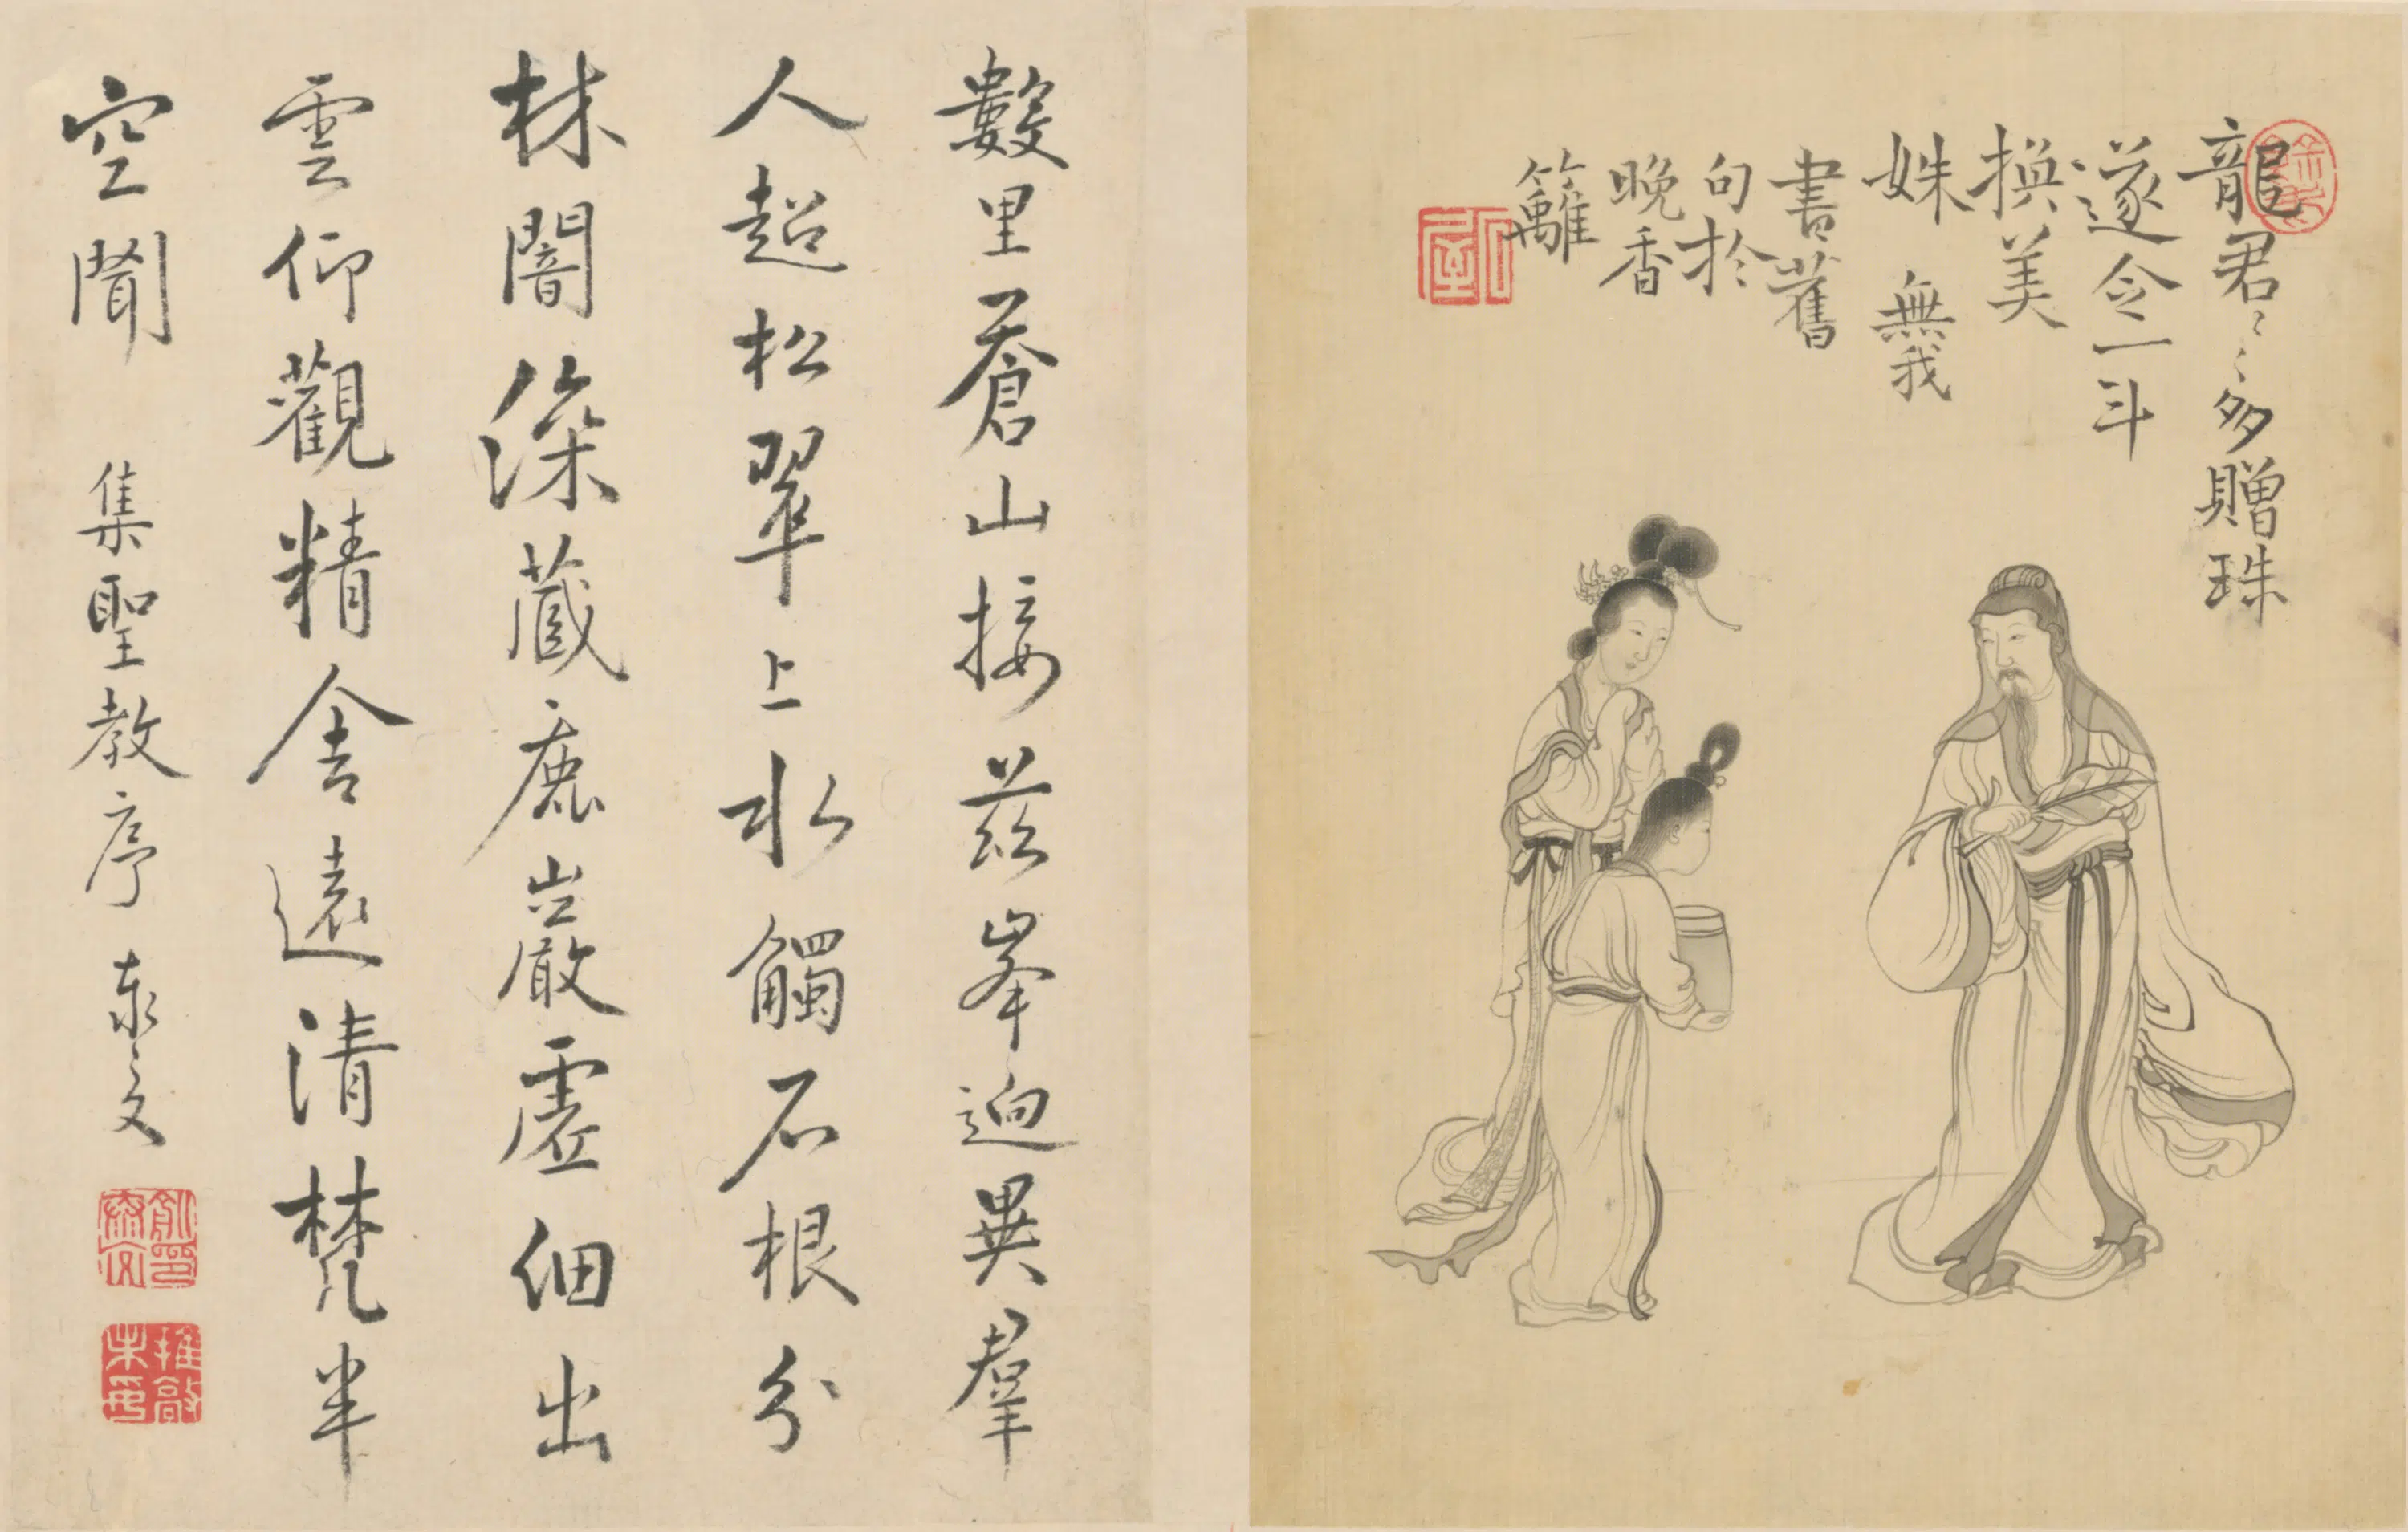 龍君〻〻多贈珠
遂令一斗
換美
姝 無我
書舊
句於
晚香
籬
數里蒼山接茲峯迥異羣
人超松翠上水觸石根分
林闇深藏鹿巖虛細出
雲仰觀精舍遠清梵半
空聞 集聖教序 泰文
推敲